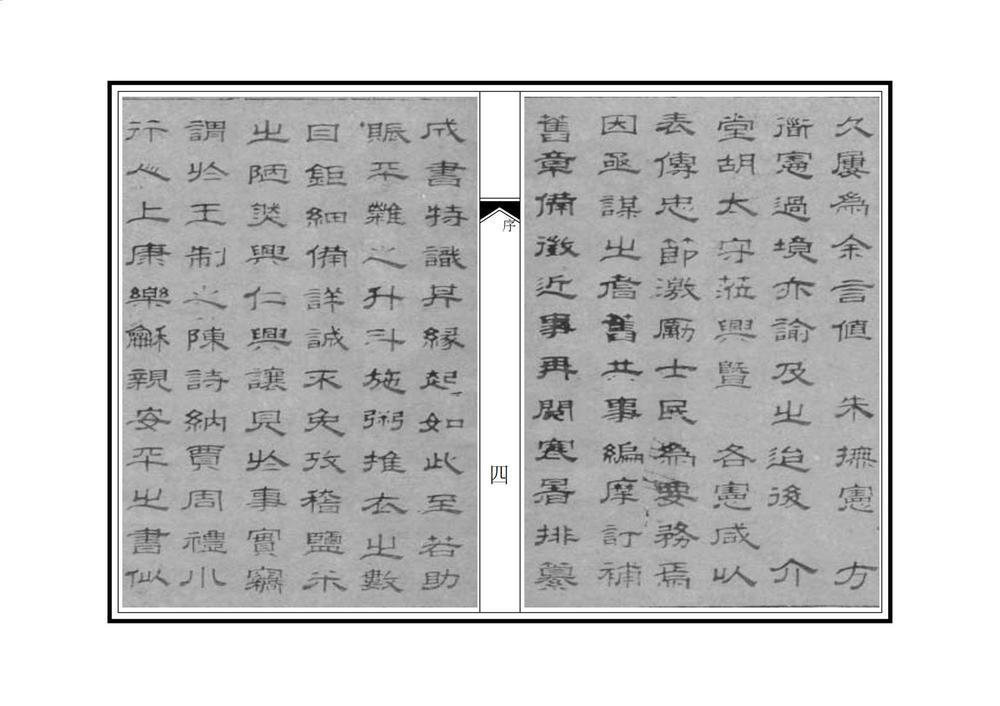 久屢為余言値　朱撫憲　方
衙憲過境亦諭及之迨後　介
堂胡太守蒞興暨　各憲咸以
表傳忠節激勵士民為要務焉
因亟謀之耆舊共事編摩訂補
舊章備徵近事再閱寒暑排纂
序
四
成書特識其緣起如此至若助
賑平雜之升斗施粥推衣之數
目鉅細備詳誠不免攷稽鹽米
之陋談興仁興讓見於事實竊
謂於王制之陳詩納賈周禮小
行人上康樂龢親安平之書似